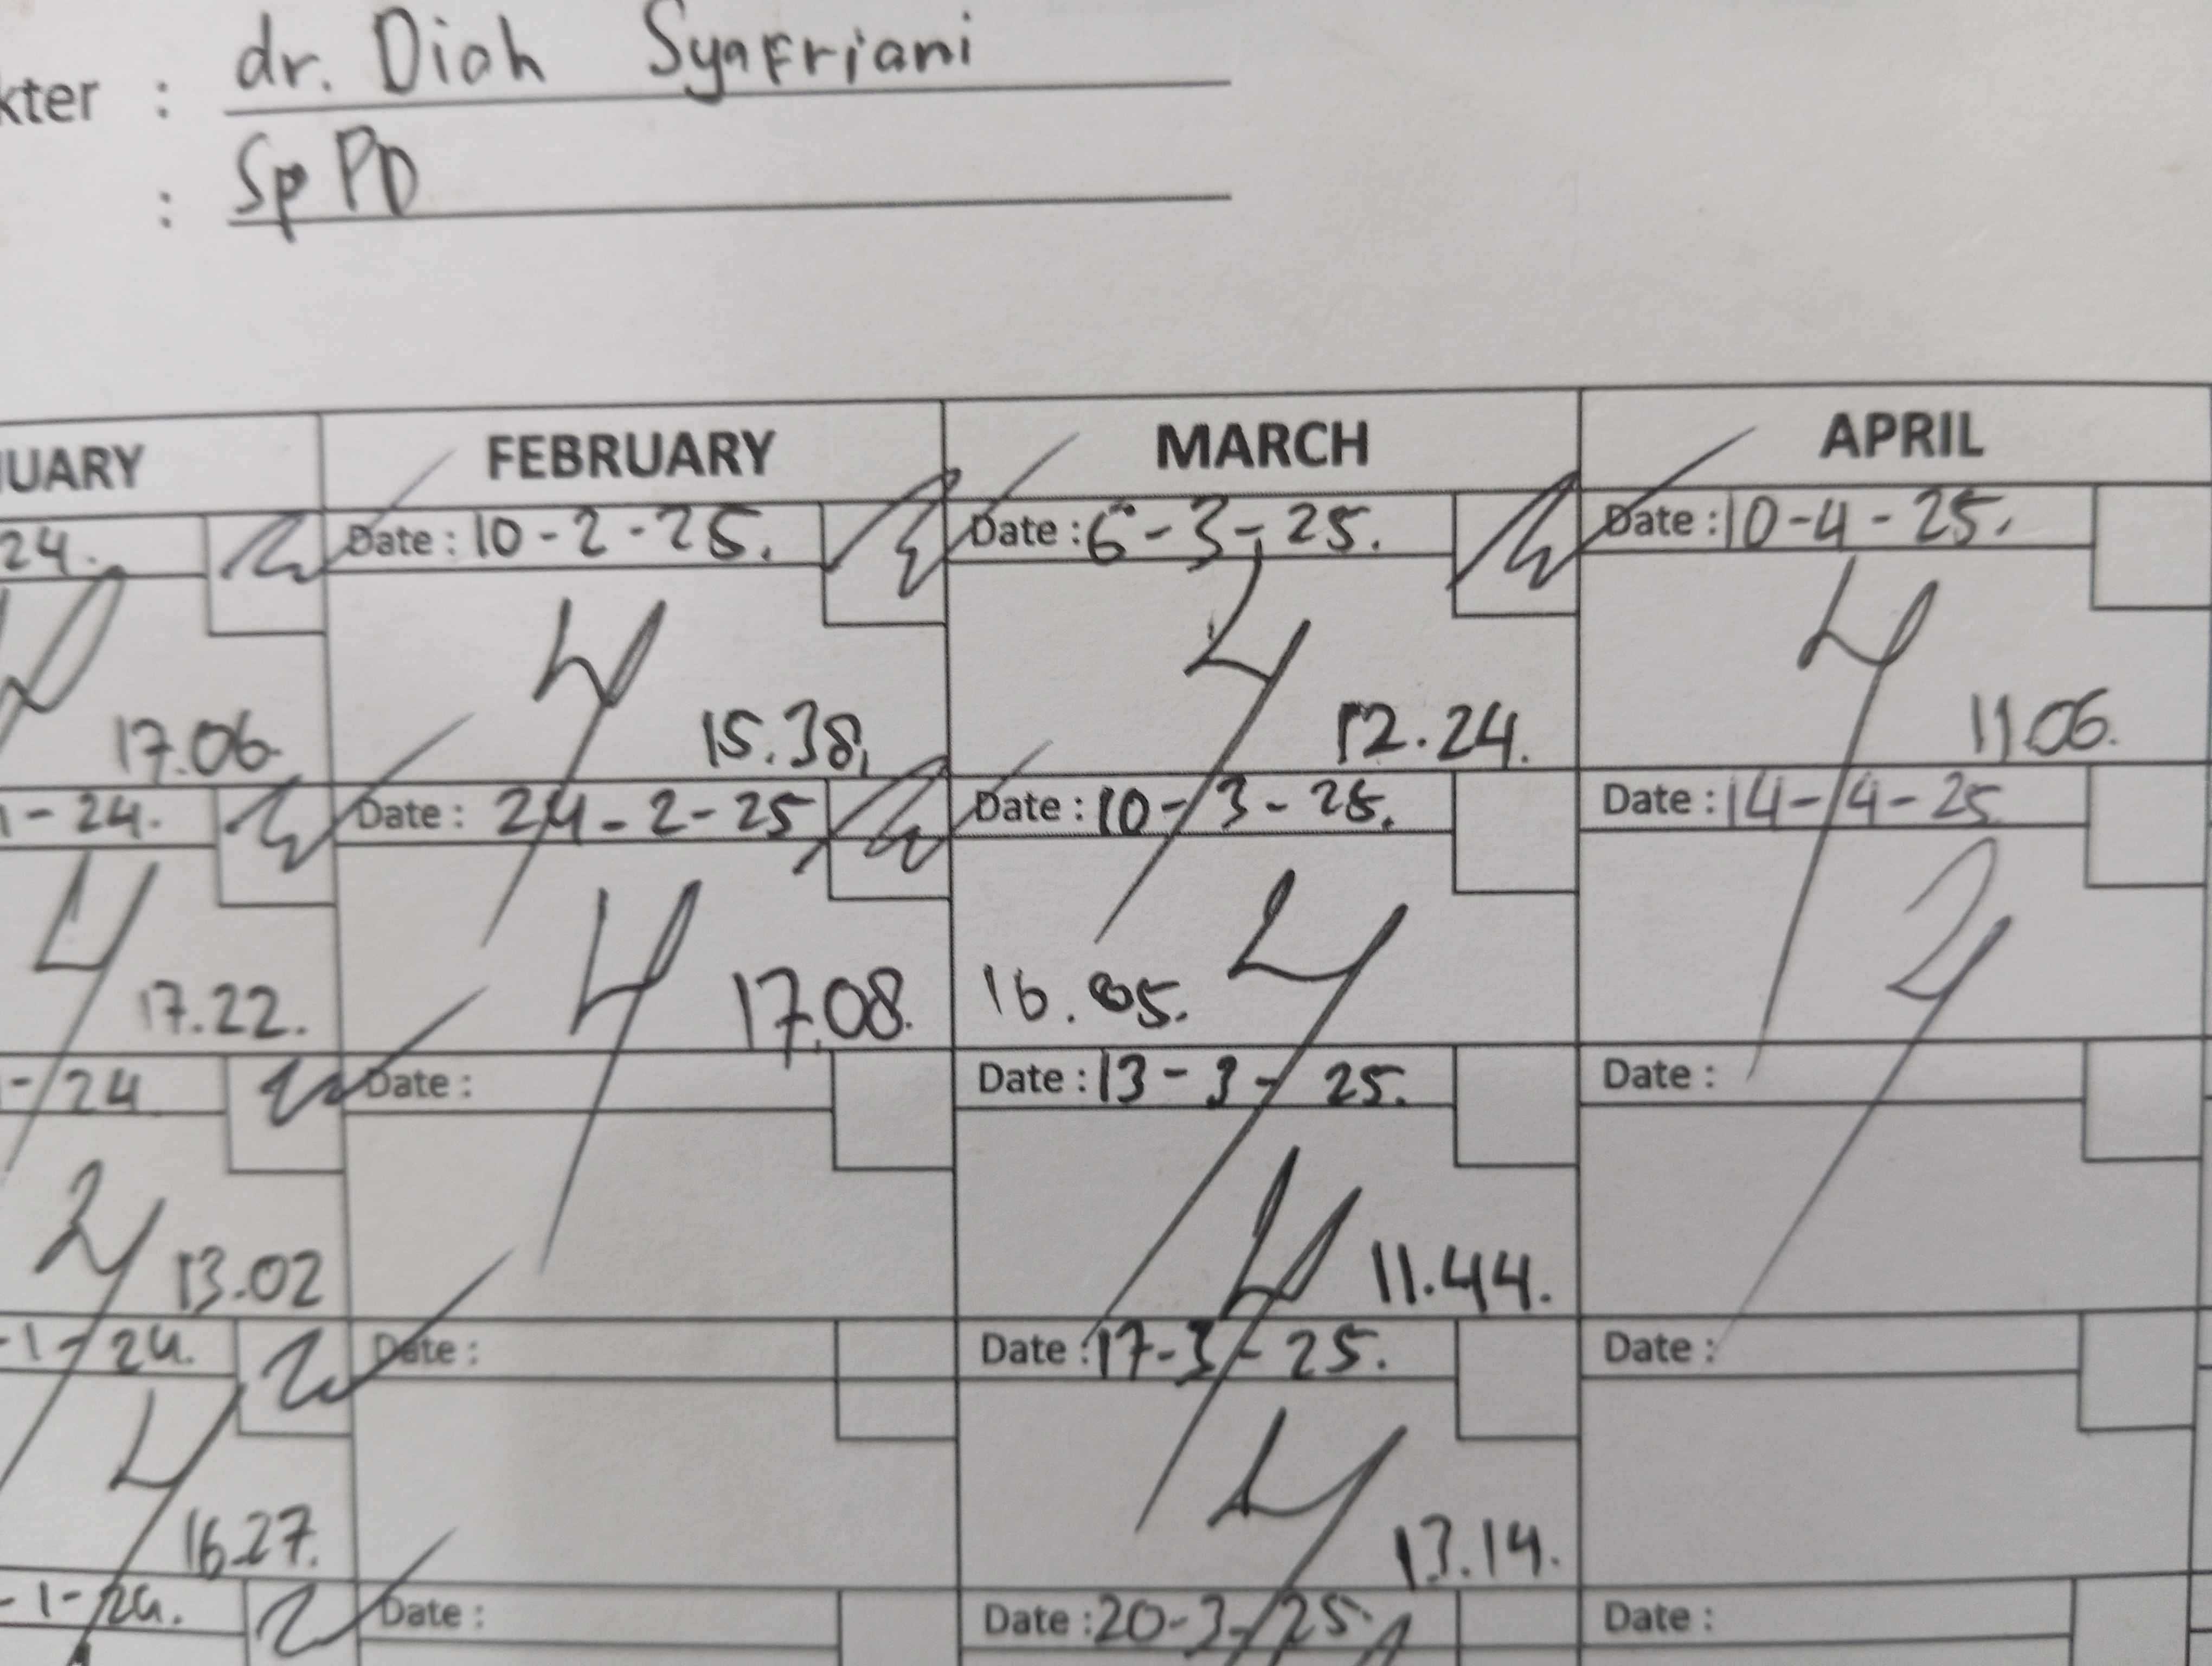 kter : dr. Diah Syafriani
: Sp PD
UARY FEBRUARY MARCH APRIL
24. Date : 10-2-25. Date : 6-3-25. Date : 10-4-25.
17.06 15.38. 12.24. 11.06.
1-24. Date : 24-2-25 Date : 10-3-25. Date : 14-4-25
17.22. 17.08. 16.05.
-24 Date : Date : 13-3-25. Date :
13.02 11.44.
-1-24. Date : Date : 17-3-25. Date :
16.27. 13.14.
-1-24. Date : Date : 20-3-25. Date :